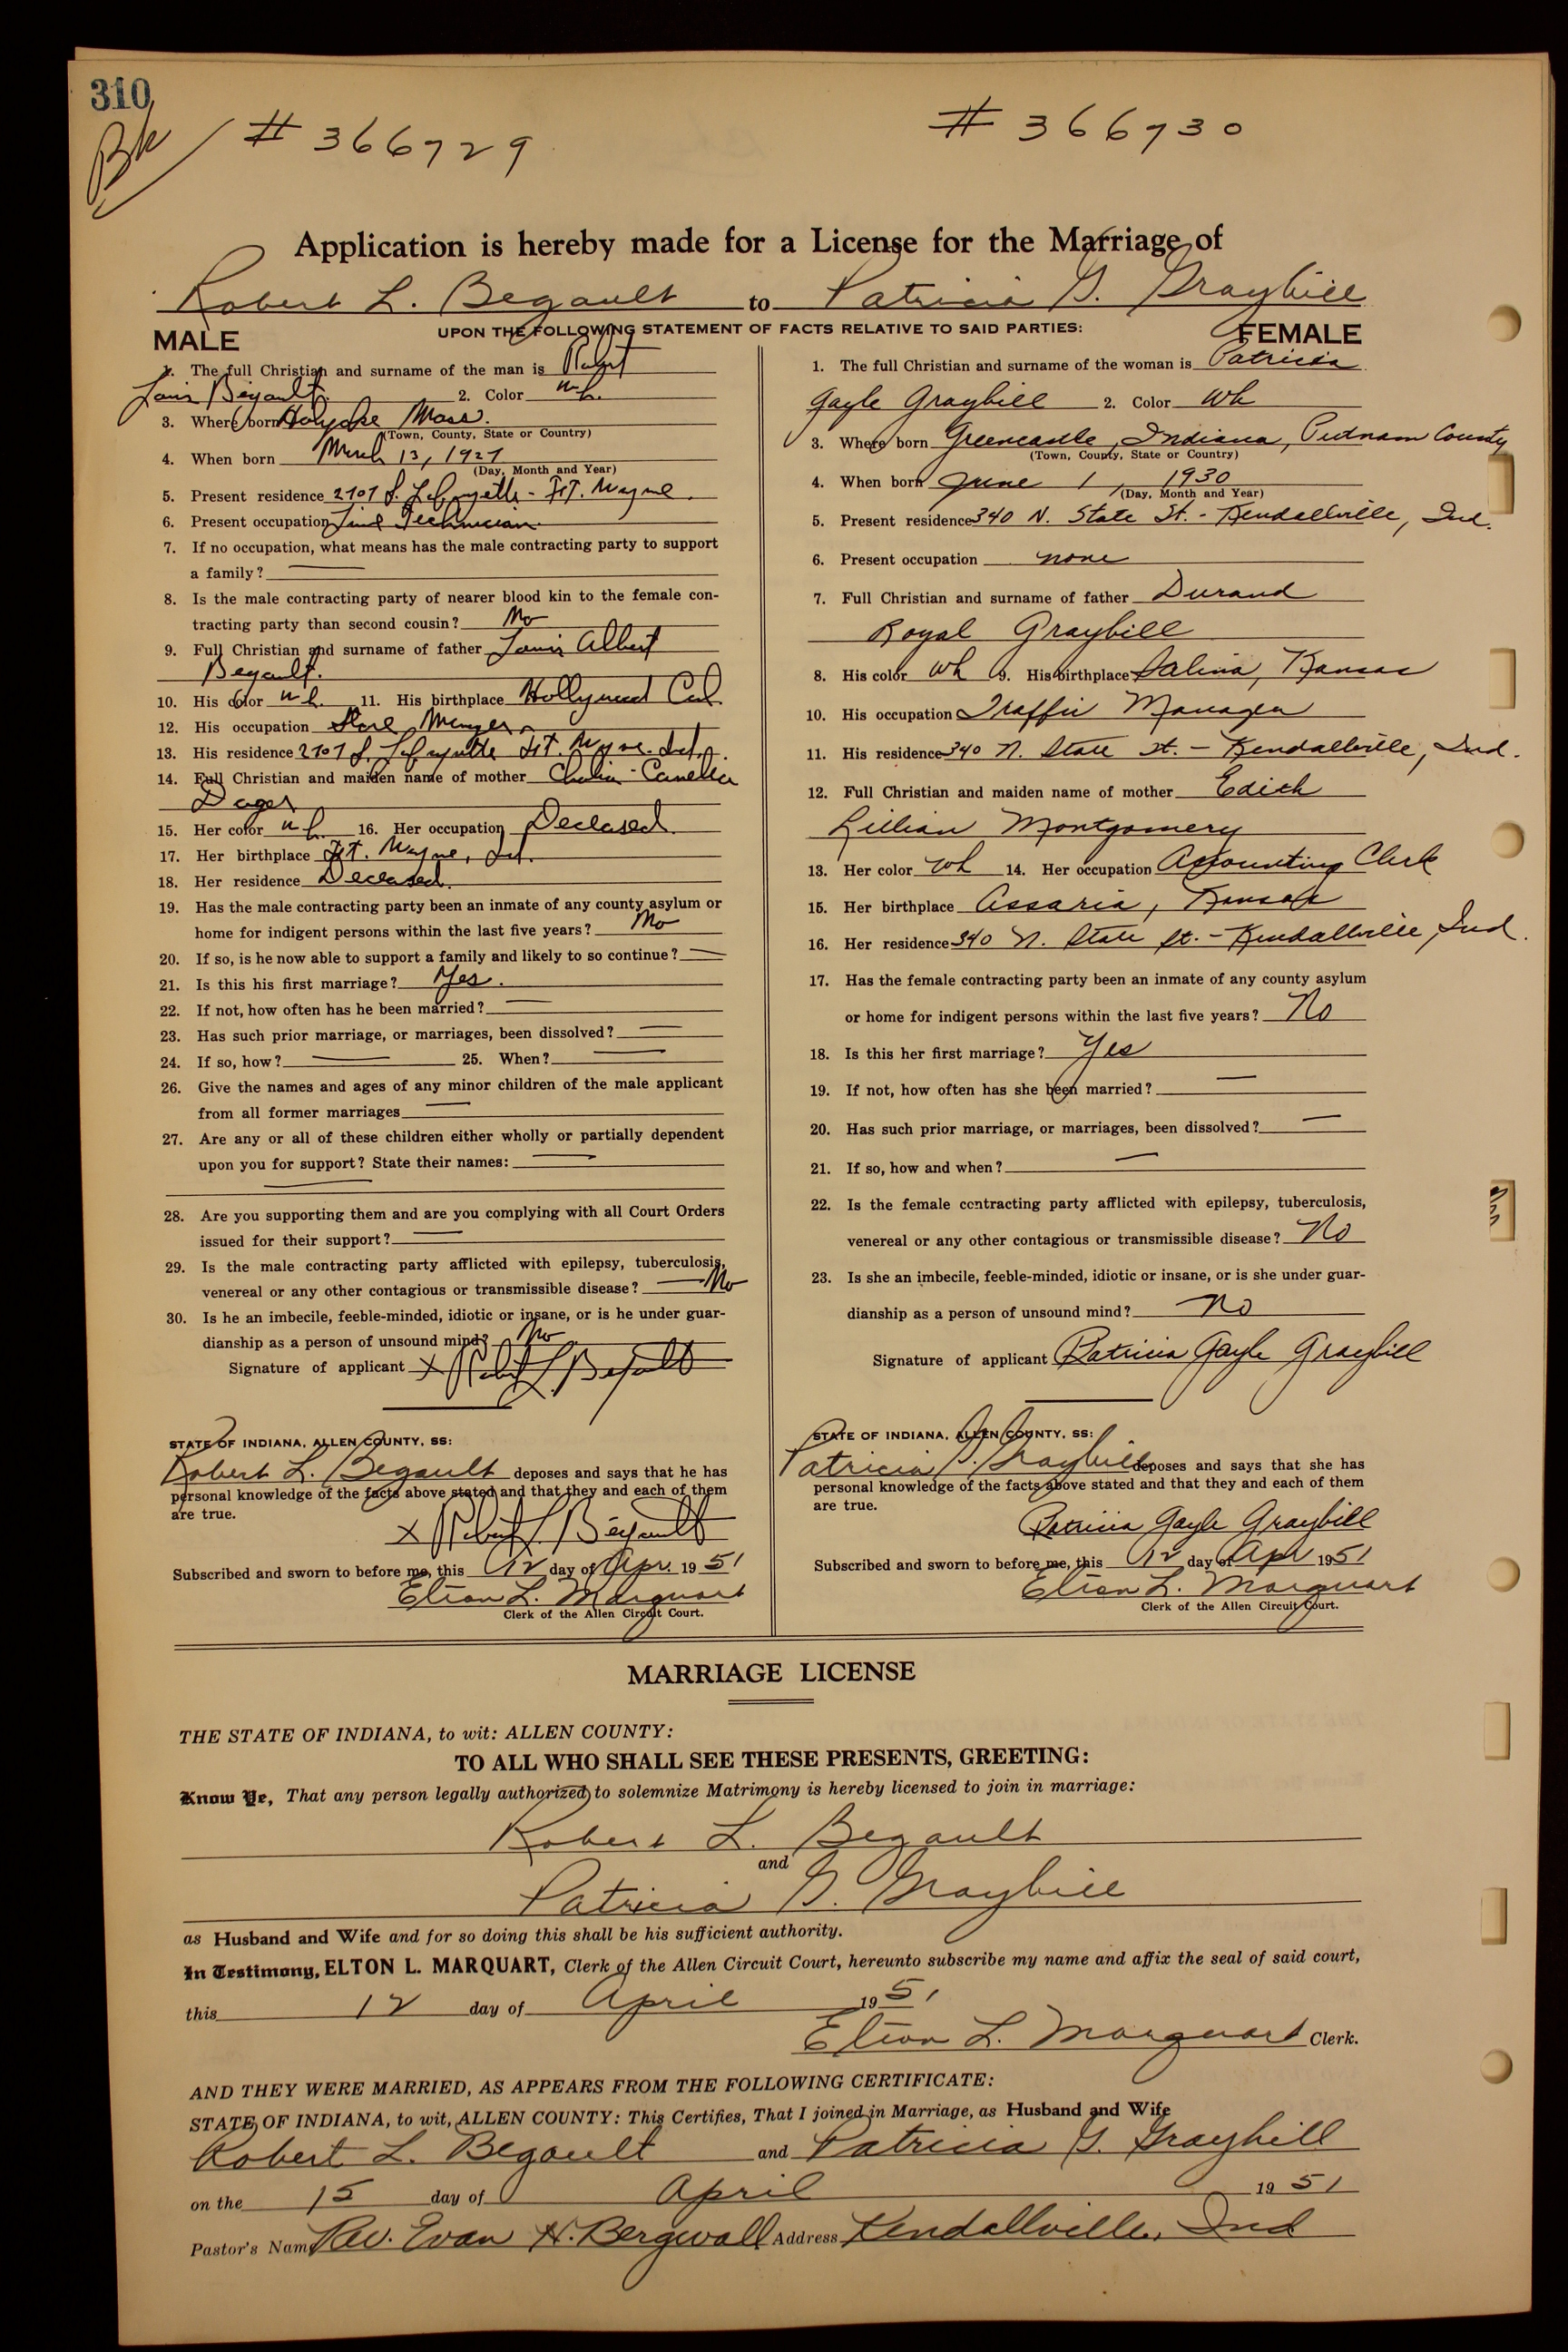 310
Bk
# 366729 # 366730
Application is hereby made for a License for the Marriage of
Robert L. Begault to Patricia G. Graybill
UPON THE FOLLOWING STATEMENT OF FACTS RELATIVE TO SAID PARTIES:
MALE
1. The full Christian and surname of the man is Robert
Louis Begault. 2. Color wh.
3. Where born Holyoke Mass.
(Town, County, State or Country)
4. When born March 13, 1927
(Day, Month and Year)
5. Present residence 2707 S. Lafayette - Ft. Wayne.
6. Present occupation Technician.
7. If no occupation, what means has the male contracting party to support
a family?
8. Is the male contracting party of nearer blood kin to the female con-
tracting party than second cousin? No
9. Full Christian and surname of father Louis Albert
Begault.
10. His color wh. 11. His birthplace Hollywood Cal.
12. His occupation Store Manager
13. His residence 2707 S. Lafayette Ft. Wayne. Ind.
14. Full Christian and maiden name of mother
15. Her color wh. 16. Her occupation Deceased.
17. Her birthplace Ft. Wayne, Ind.
18. Her residence Deceased.
19. Has the male contracting party been an inmate of any county asylum or
home for indigent persons within the last five years? No
20. If so, is he now able to support a family and likely to so continue?
21. Is this his first marriage? Yes.
22. If not, how often has he been married?
23. Has such prior marriage, or marriages, been dissolved?
24. If so, how? 25. When?
26. Give the names and ages of any minor children of the male applicant
from all former marriages
27. Are any or all of these children either wholly or partially dependent
upon you for support? State their names:
28. Are you supporting them and are you complying with all Court Orders
issued for their support?
29. Is the male contracting party afflicted with epilepsy, tuberculosis,
venereal or any other contagious or transmissible disease? No
30. Is he an imbecile, feeble-minded, idiotic or insane, or is he under guar-
dianship as a person of unsound mind? No
Signature of applicant X Robert L. Begault
STATE OF INDIANA, ALLEN COUNTY, SS:
Robert L. Begault deposes and says that he has
personal knowledge of the facts above stated and that they and each of them
are true.
X Robert L. Begault
Subscribed and sworn to before me, this 12 day of Apr. 19 51
Elton L. Marquart
Clerk of the Allen Circuit Court.
FEMALE
1. The full Christian and surname of the woman is Patricia
Gayle Graybill 2. Color wh
3. Where born Greencastle, Indiana, Putnam County
(Town, County, State or Country)
4. When born June 1, 1930
(Day, Month and Year)
5. Present residence 340 N. State St. - Kendallville, Ind.
6. Present occupation none
7. Full Christian and surname of father Durand
Royal Graybill
8. His color wh 9. His birthplace Salina, Kansas
10. His occupation Traffic Manager
11. His residence 340 N. State St. - Kendallville, Ind.
12. Full Christian and maiden name of mother Edith
Lillian Montgomery
13. Her color wh 14. Her occupation Accounting Clerk
15. Her birthplace Assaria, Kansas
16. Her residence 340 N. State St. - Kendallville, Ind.
17. Has the female contracting party been an inmate of any county asylum
or home for indigent persons within the last five years? No
18. Is this her first marriage? Yes
19. If not, how often has she been married?
20. Has such prior marriage, or marriages, been dissolved?
21. If so, how and when?
22. Is the female contracting party afflicted with epilepsy, tuberculosis,
venereal or any other contagious or transmissible disease? No
23. Is she an imbecile, feeble-minded, idiotic or insane, or is she under guar-
dianship as a person of unsound mind? No
Signature of applicant Patricia Gayle Graybill
STATE OF INDIANA, ALLEN COUNTY, SS:
Patricia G. Graybill deposes and says that she has
personal knowledge of the facts above stated and that they and each of them
are true.
Patricia Gayle Graybill
Subscribed and sworn to before me, this 12 day of Apr 1951
Elton L. Marquart
Clerk of the Allen Circuit Court.
MARRIAGE LICENSE
THE STATE OF INDIANA, to wit: ALLEN COUNTY:
TO ALL WHO SHALL SEE THESE PRESENTS, GREETING:
Know Ye, That any person legally authorized to solemnize Matrimony is hereby licensed to join in marriage:
Robert L. Begault
and
Patricia G. Graybill
as Husband and Wife and for so doing this shall be his sufficient authority.
In Testimony, ELTON L. MARQUART, Clerk of the Allen Circuit Court, hereunto subscribe my name and affix the seal of said court,
this 12 day of April 19 51
Elton L. Marquart Clerk.
AND THEY WERE MARRIED, AS APPEARS FROM THE FOLLOWING CERTIFICATE:
STATE OF INDIANA, to wit, ALLEN COUNTY: This Certifies, That I joined in Marriage, as Husband and Wife
Robert L. Begault and Patricia G. Graybill
on the 15 day of April 19 51
Pastor's Name Rev. Evan H. Bergwall Address Kendallville, Ind